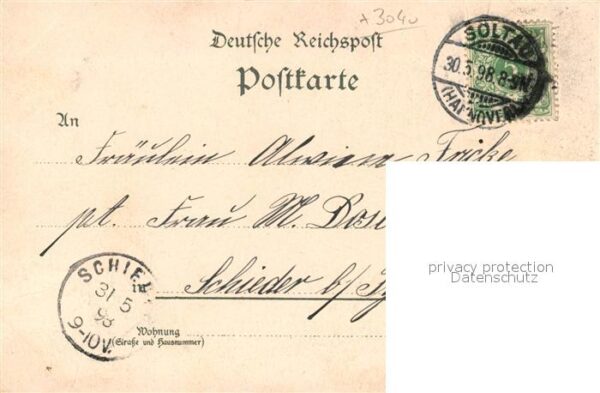 A 3040
Deutsche Reichspost
Postkarte
SOLTAU
30.5.98. 8-9N.
(HANNOVER)
An
Fräulein Alwine Fricke
pt. Frau M.
privacy protection
Datenschutz
SCHIE
31 5
98
9-10V.
in Schieder b/
Wohnung
(Straße und Hausnummer)